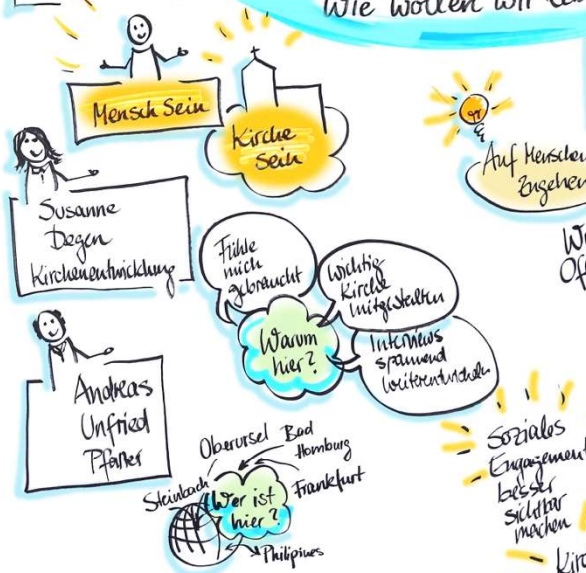 Wie wollen wir
Mensch Sein
Kirche
Sein
Auf Menschen
Zugehen
Susanne
Degen
Kirchenentwicklung
Fühle
mich
gebraucht
Wichtig
Kirche
mitgestalten
Warum
hier?
Interviews
spannend
weiterentwickeln
Andreas
Unfried
Pfarrer
Oberursel
Bad
Homburg
Steinbach
Frankfurt
Wer ist
hier?
Philipines
Soziales
Engagement
besser
sichtbar
machen